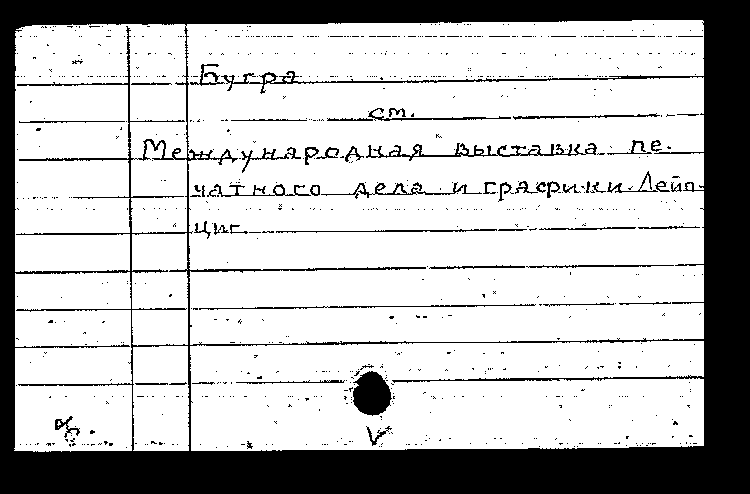 Бугра
см.
Международная выставка пе-
чатного дела и графики. Лейп-
циг.